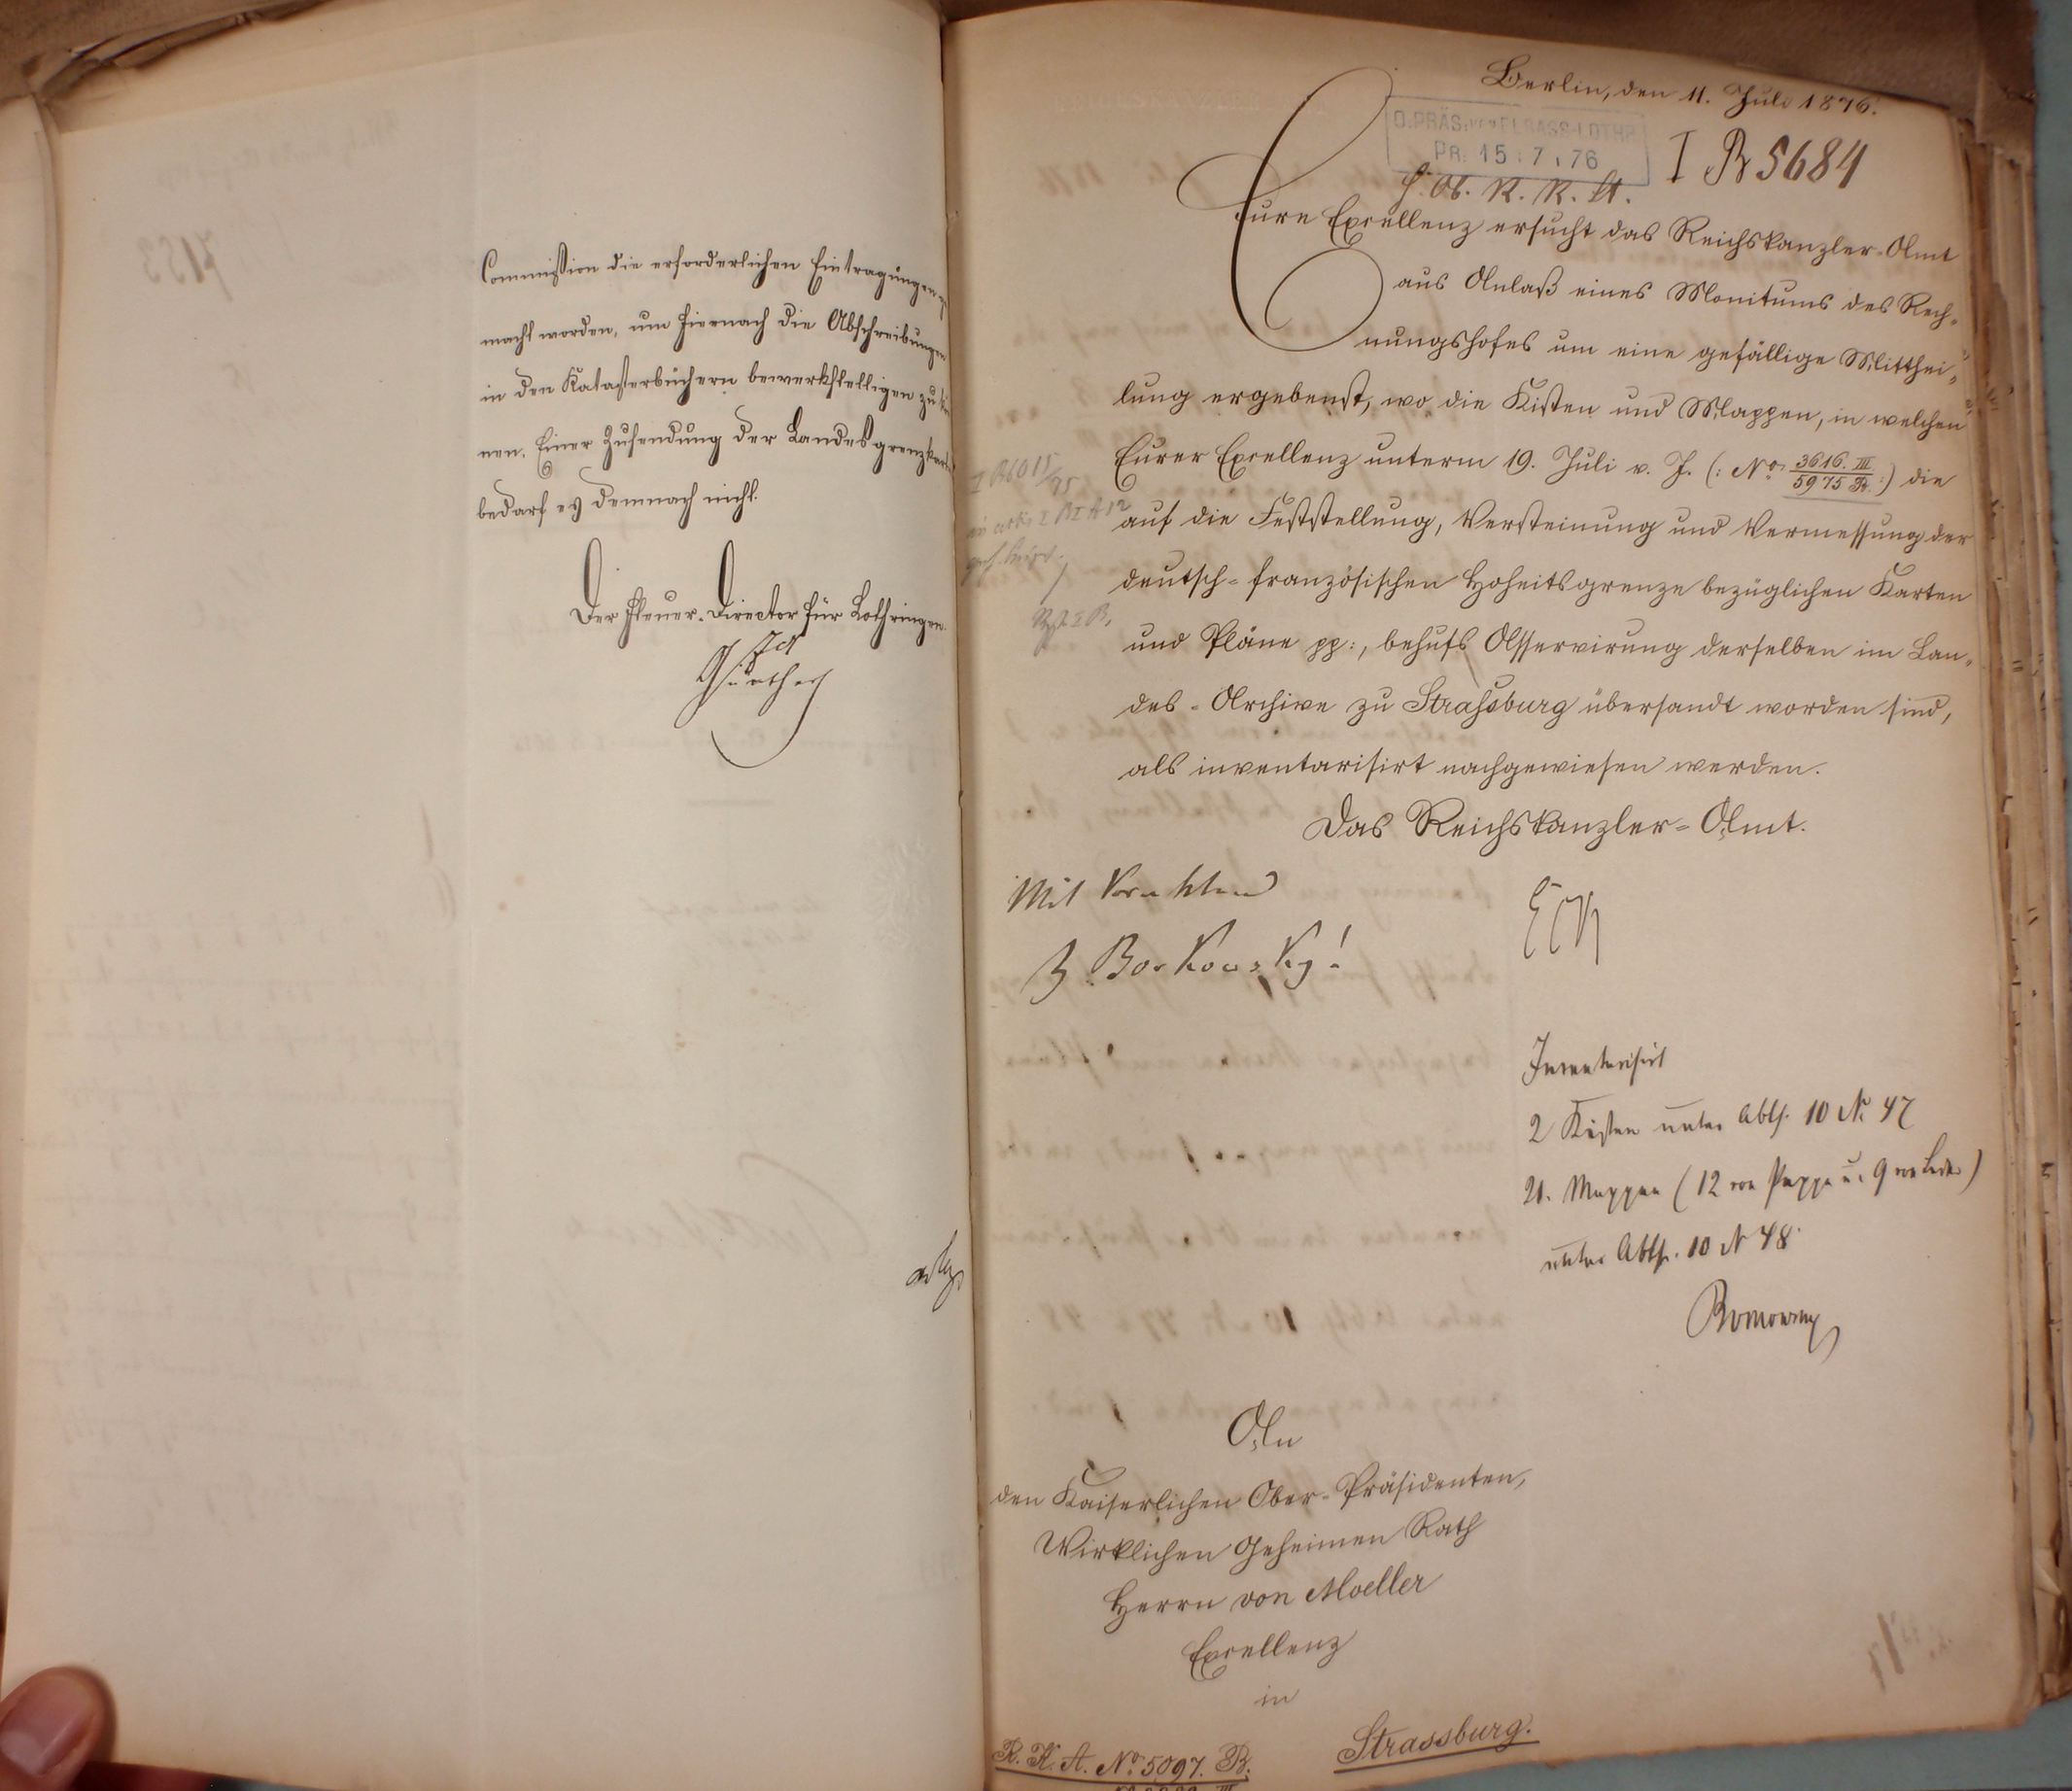 Commission die erforderlichen Eintragungen
macht worden, um hiernach die Abschreibungen
in den Katasterbüchern bewerkstelligen zu
nen. Einer Zusendung der Landesgrenz
bedarf es demnach nicht.
Der Steuer-Director für Lothringen.
Berlin, den 11. Juli 1876.
O.PRÄS: ELSASS-LOTHR
PR: 15.7.76
I B 5684
Eure Excellenz ersucht das Reichskanzler-Amt
aus Anlaß eines Monitums des Rech-
nungshofes um eine gefällige Mitthei-
lung ergebenst, wo die Kisten und Mappen, in welchen
Eurer Excellenz unterm 19. Juli v. J. (: No. 3616. III / 5975 R. :) die
auf die Feststellung, Versteinung und Vermessung der
deutsch-französischen Hoheitsgrenze bezüglichen Karten
und Pläne pp:, behufs Asservirung derselben im Lan-
des-Archive zu Strassburg übersandt worden sind,
als inventarisirt nachgewiesen werden.
Das Reichskanzler-Amt.
Eck
Mit
Borkowsky!
Inventarisirt
2 Kisten unter Abth. 10 No 47
21. Mappen (12 von Pappe u. 9 von Leder)
unter Abth. 10 N 48.
An
den Kaiserlichen Ober-Präsidenten,
Wirklichen Geheimen Rath
Herrn von Moeller
Excellenz
in
Strassburg.
R. K. A. No. 5097. B.